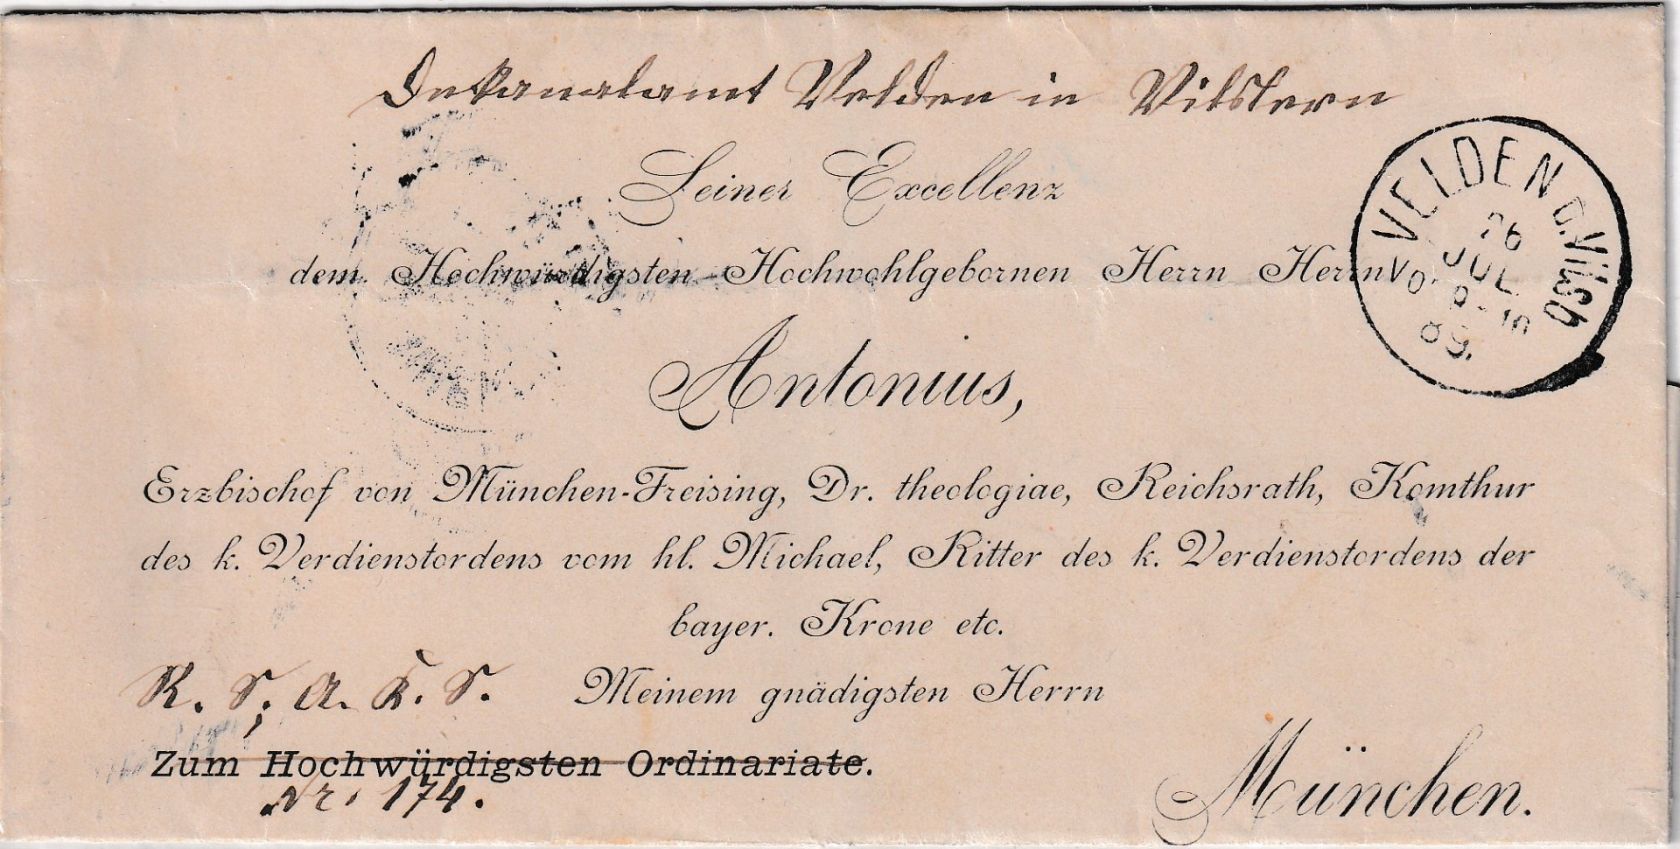 Dekanalamt Velden in Vilslern
Seiner Excellenz
dem Hochwürdigsten Hochwohlgebornen Herrn Herrn
Antonius,
Erzbischof von München-Freising, Dr. theologiae, Reichsrath, Komthur
des k. Verdienstordens vom hl. Michael, Ritter des k. Verdienstordens der
bayer. Krone etc.
R. S. A. K. S.
Meinem gnädigsten Herrn
Zum Hochwürdigsten Ordinariate.
Nr. 174.
München.
VELDEN a. Vilsb
26
JUL
89.